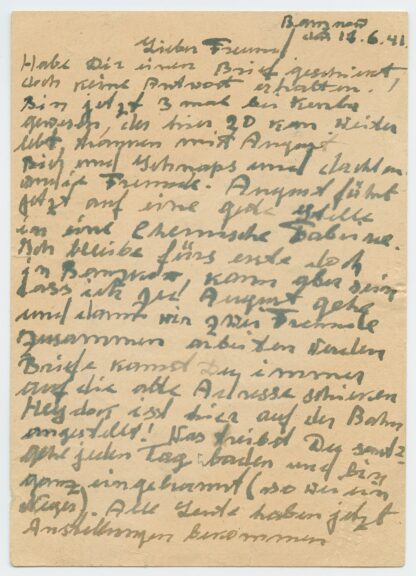 den 18.6.41.
Lieber Freund
Habe Dir einen Brief geschrieben,
doch keine Antwort erhalten.
Bin jetzt 3 mal bei
gewesen, der hier 20 km weiter
lebt mit August
Bier und Schnaps und dachten
an die Freunde. August fährt
jetzt auf eine gute Stelle
in eine Chemische Fabrike.
Ich bleibe fürs erste doch
in kann aber sein
dass ich zu August gehe
und dann wir zwei Freunde
zusammen arbeiten werden
Briefe kannst Du immer
auf die alte Adresse schicken
Heydorf isst hier auf der Bahn
angestellt! Was treibst Du sonst?
gehe jeden Tag baden und bin
ganz eingebrannt (so wie ein
Neger). Alle Leute haben jetzt
Anstellungen bekommen